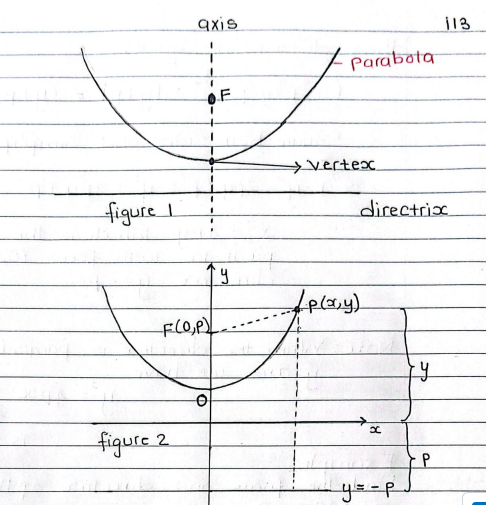 axis 113
parabola
F
vertex
figure 1 directrix
y
P(x,y)
F(0,P)
y
O
x
figure 2
P
y = -P